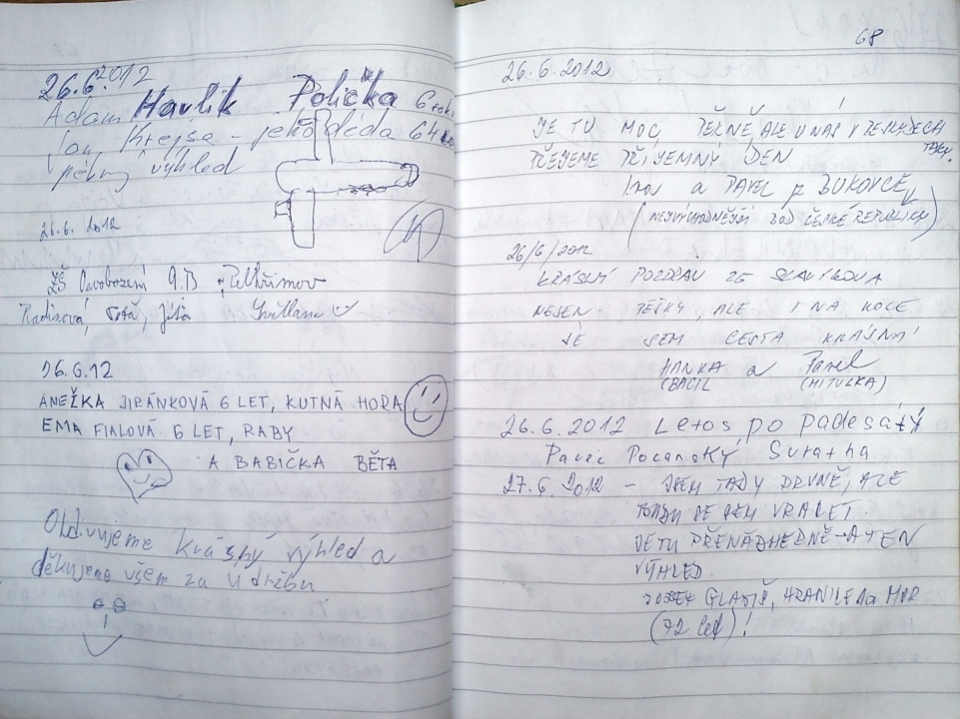 26.6.2012
Adam Havlík Polička 6
Jan Krejsa - jeho děda 64
pěkný výhled
26.6. 2012
ZŠ Osvobození 9.B Pelhřimov
Radinová, Jíťa
26.6.12
ANEŽKA JIRÁNKOVÁ 6 LET, KUTNÁ HORA
EMA FIALOVÁ 6 LET, RABY
A BABIČKA BĚTA
Obdivujeme krásný výhled a
děkujeme všem za údržbu
68
26.6.2012
JE TU MOC PĚKNĚ, ALE U NÁS V BESKYDECH
TAKY.
PŘEJEME PŘÍJEMNÝ DEN
a PAVEL z BUKOVCE
(NEJVÝCHODNĚJŠÍ BOD ČESKÉ REPUBLIKY)
26/6/2012
KRÁSNÝ POZDRAV ZE
NEJEN PĚŠKY, ALE I NA KOLE
JE SEM CESTA KRÁSNÁ
HANKA a Pavel
(BACIL (MITULKA)
26.6.2012 Letos po padesátý
Pavel Svratka
27.6.2012 - JSEM TADY PRVNĚ, ALE
BUDU SE SEM VRACET.
JE TU PŘENÁDHERNĚ - A TEN
VÝHLED.
JOSEF
(72 let)!